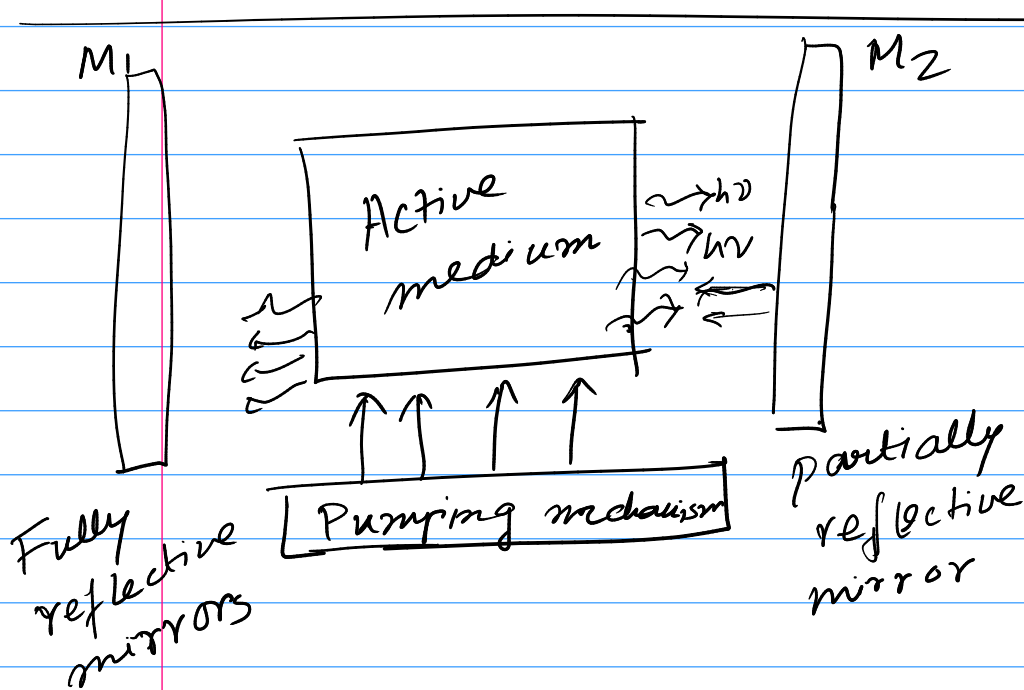 M1
M2
Active
medium
hν
hν
Pumping mechanism
Fully
reflective
mirrors
partially
reflective
mirror